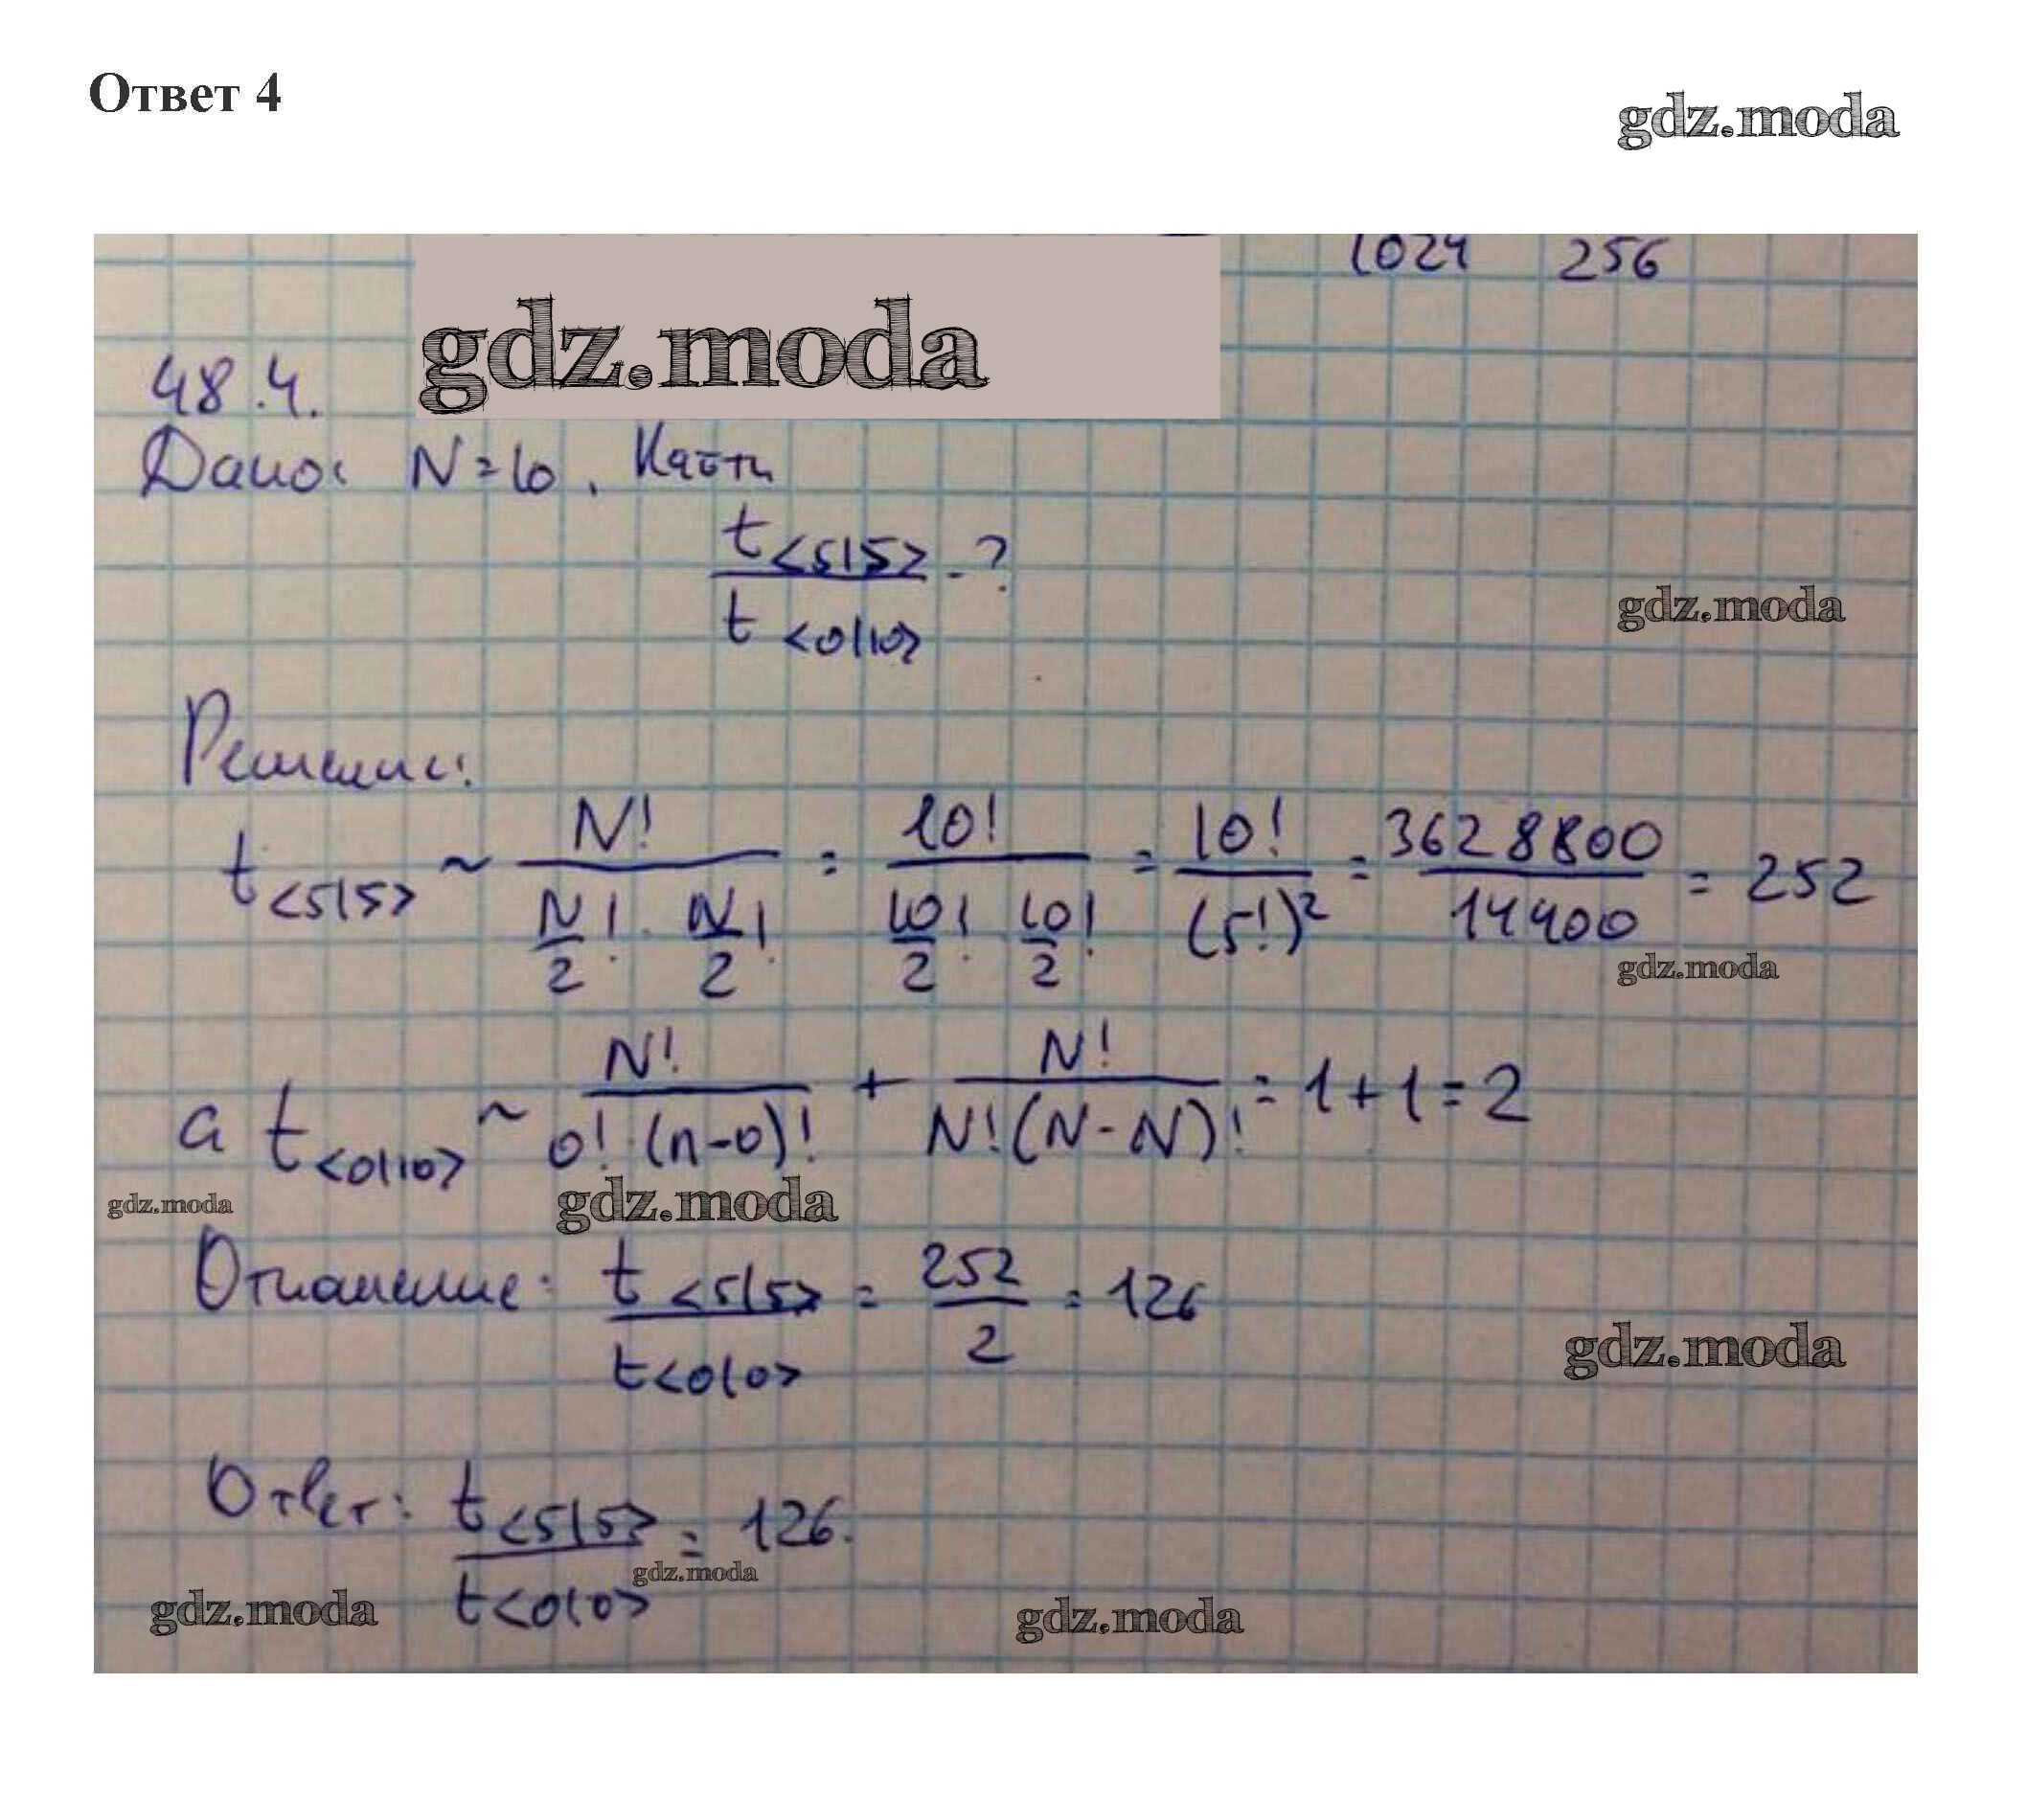 Ответ 4
gdz.moda
1024 256
gdz.moda
48.4.
Дано: N=10. Найти
t<5|5> - ?
t<0|10>
gdz.moda
Решение:
t<5|5> ~ N! / (N/2! · N/2!) = 10! / (10/2! 10/2!) = 10! / (5!)² = 3628800 / 14400 = 252
gdz.moda
а t<0|10> ~ N! / (0! · (n-0)!) + N! / (N!(N-N)!) = 1+1=2
gdz.moda
gdz.moda
Отношение: t<5|5> / t<0|0> = 252 / 2 = 126
gdz.moda
Ответ: t<5|5> / t<0|0> = 126.
gdz.moda
gdz.moda
gdz.moda